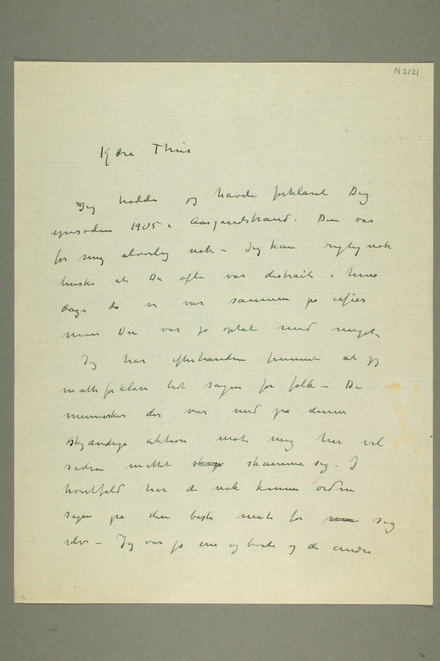 N 2121
Kjære Thiis
Jeg trodde jeg havde forklaret Dig
episoden 1905 i Aasgaardstrand. Den var
for mig alvorlig nok – Jeg kan nok
huske at Du ofte var distrait i hine
dage da vi var sammen på caféer
men Du var jo optat med meget
Jeg har efterhaanden funnet at jeg
måtte forklare lidt sagen for folk – De
mennesker der var med på denne
skjændige aktion mot mig har vel
siden måttet skamme sig. I
hvertfald har de nok kunnet ordne
sagen på den beste måte for sig
selv – Jeg var jo ene og borte og de andre